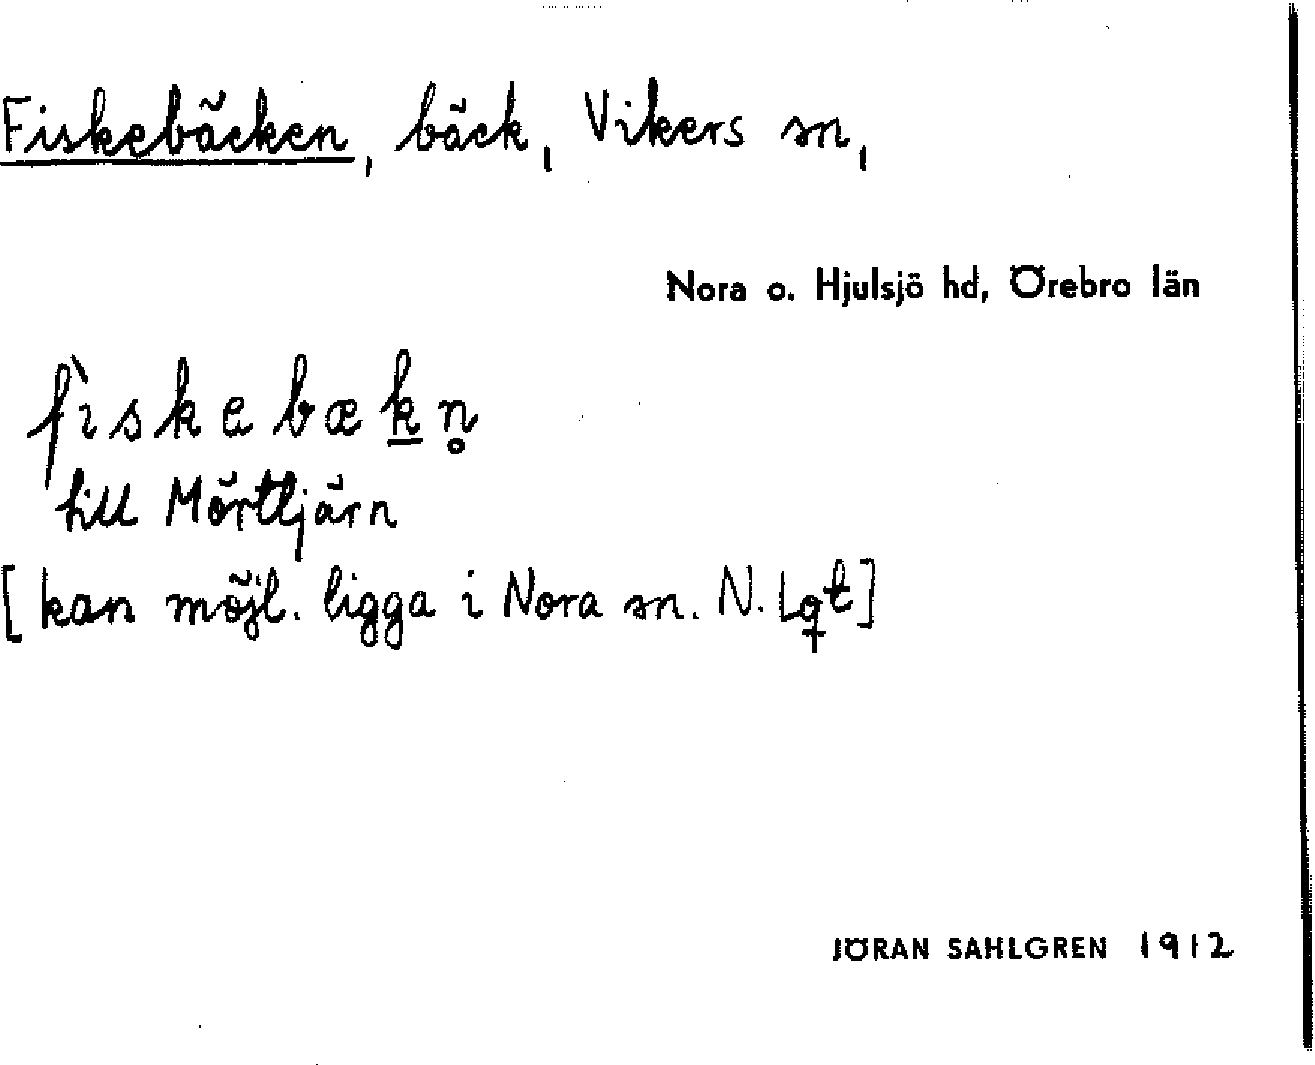 Fiskebäcken, bäck, Vikers sn,
Nora o. Hjulsjö hd, Örebro län
fìskebæk̲n̥
till Mörttjärn
[kan möjl. ligga i Nora sn. N. Lqt]
JÖRAN SAHLGREN 1912